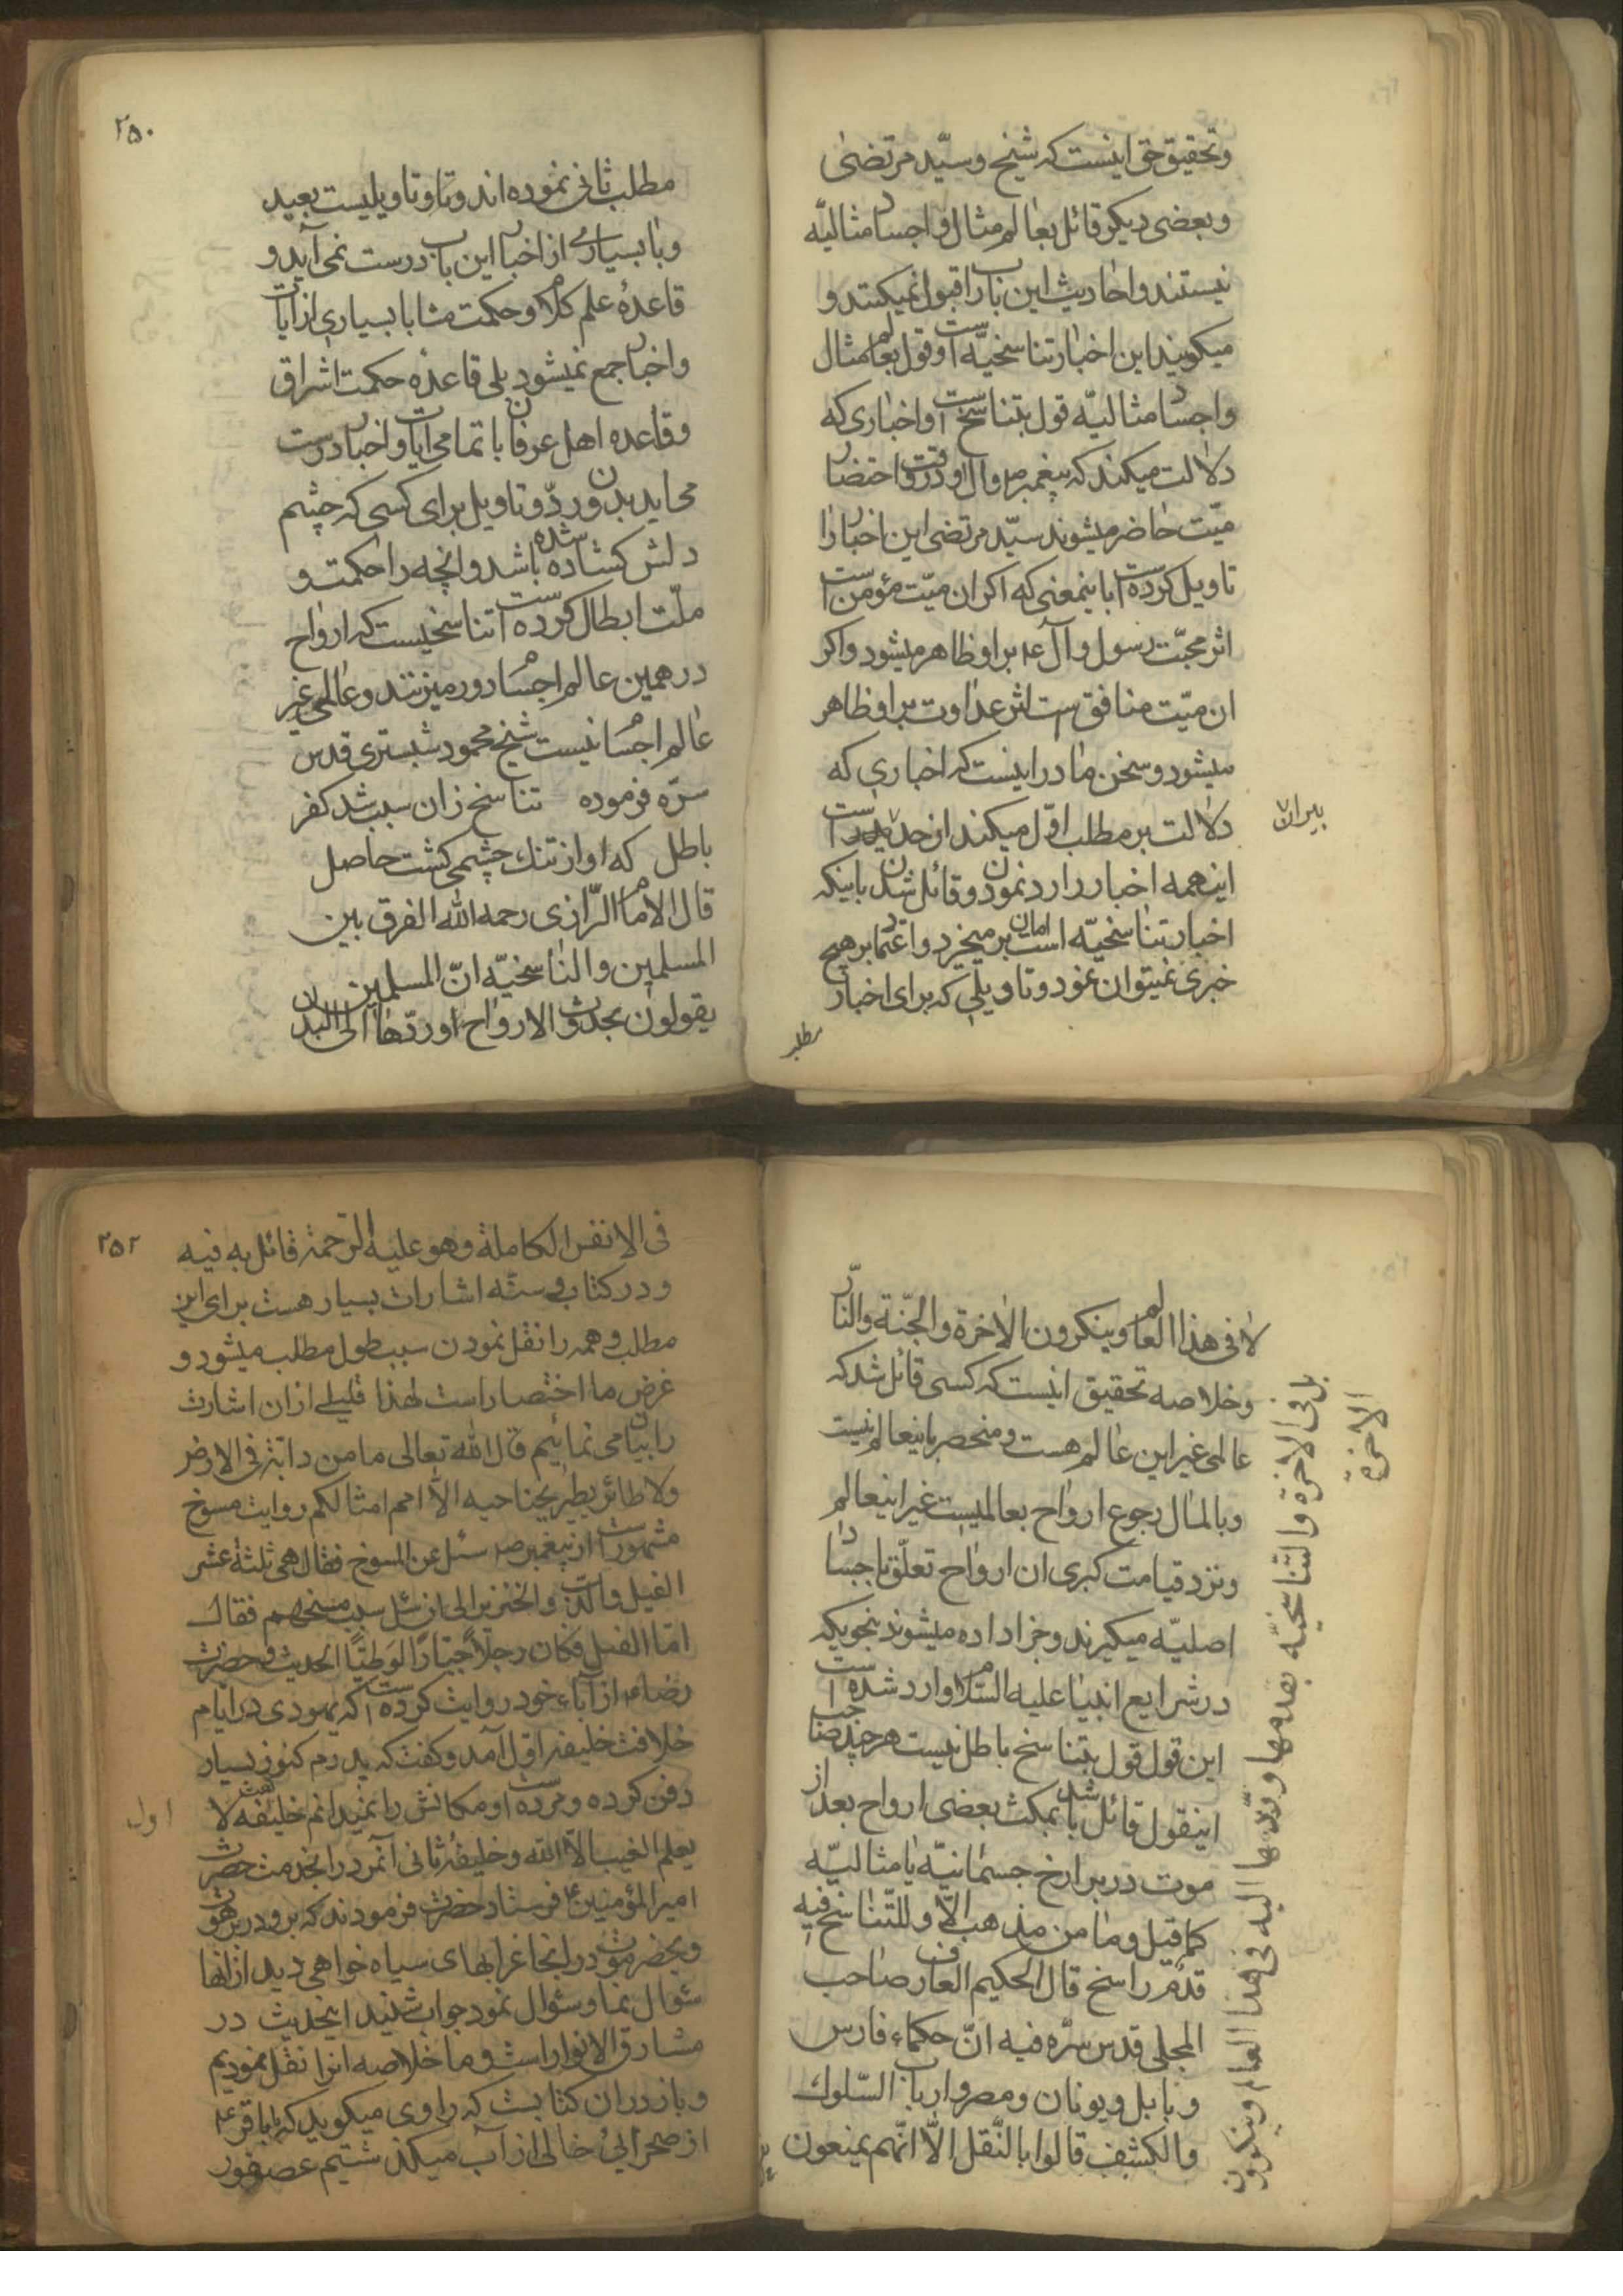 وتحقیق حق اینست که شیخ و سیّد مرتضی
وبعضی دیگر قائل بعالم مثال و اجساد مثالیّه
نیستند و احادیث این باب را قبول نمیکنند و
میگویند این اخبار تناسخیّه است و قول بعالم مثال
واجساد مثالیّه قول بتناسخ است و اخباری که
دلالت میکند که پیغمبر ص وال او در وقت احتضار
میّت حاضر میشوند سیّد مرتضی این اخبار را
تاویل کرده است باینمعنی که اگر ان میّت مؤمن است
اثر محبّت رسول و آل ع بر او ظاهر میشود و اگر
ان میّت منافق است اثر عداوت بر او ظاهر
میشود و سخن ما در اینست که اخباری که
دلالت بر مطلب اوّل میکند از حد است
بیرون
اینهمه اخبار را رد نمودن و قائل شدن باینکه
اخبار تناسخیّه است امان بر میخیزد و اعتماد بر هیچ
خبری نمیتوان نمود و تاویلی که برای اخبار
مطلب
۲۵۰
مطلب ثانی نموده اند و تاویلیست بعید
وبا بسیاری از اخبار این باب درست نمی آید و
قاعدهٔ علم کلام و حکمت مشا با بسیاری از ایات
واخبار جمع نمیشود بلی قاعدهٔ حکمت اشراق
وقاعده اهل عرفان با تمامی ایات و اخبار درست
می اید بدون ردّ و تاویل برای کسی که چشم
دلش گشاده شده باشد و انچه را حکمت و
ملّت ابطال کرده است تناسخیست که ارواح
در همین عالم اجسام دور میزنند و عالمی غیر
عالم اجسام نیست شیخ محمود شبستری قدس
سرّه فرموده تناسخ زان سبب شد کفر
باطل که او از تنک چشمی گشت حاصل
قال الامام الرّازی رحمه الله الفرق بین
المسلمین والتناسخیّه انّ المسلمین
یقولون بحدوث الارواح و ردّها الی البدان
لا فی هذا العالم و ینکرون الاخرة والجنّة والنّار
وخلاصه تحقیق اینست که کسی قائل شد که
عالمی غیر این عالم هست و منحصر باینعالم نیست
وبالمال رجوع ارواح بعالمیست غیر اینعالم
ونزد قیامت کبری ان ارواح تعلّق باجساد
اصلیّه میگیرند و جزا داده میشوند بنحویکه
در شرایع انبیا علیه السّلام وارد شده است
این قول قول بتناسخ باطل نیست هر چند صاحب
اینقول قائل باشد بمکث بعضی ارواح بعد از
موت در برازخ جسمانیّه یا مثالیّه
کما قیل و ما من مذهب الّا و للتّناسخ فیه
قدم راسخ قال الحکیم العارف صاحب
المجلی قدس سرّه فیه انّ حکماء فارس
وبابل و یونان و مصر و ارباب السّلوک
والکشف قالوا بالنّقل الّا انّهم یمنعون
بل فی الاخرة والتناسخیّه بقدمها و ردّها الیه فی هذا العالم و ینکرون
الاخرة
۲۵۲
فی الانفس الکاملة و هو علیه الرّحمة قائل به فیه
ودر کتاب و سنّه اشارات بسیار هست برای این
مطلب و همه را نقل نمودن سبب طول مطلب میشود و
غرض ما اختصار است لهذا قلیلی از ان اشارت
را بیان می نمائیم قال الله تعالی ما من دابّة فی الارض
ولا طائر یطیر بجناحیه الّا امم امثالکم روایت مسوخ
مشهور است از پیغمبر ص سئل عن المسوخ فقال هی ثلثة عشر
الفیل والدّب والخنزیر الی ان سئل سبب مسخهم فقال
امّا الفیل فکان رجلاً جبّاراً لوطیّا الحدیث و حضرت
رضا ع از آباء خود روایت کرده است که یهودی در ایام
خلافت خلیفه اول آمد و گفت که پدرم کنوز بسیار
دفن کرده و مرده است و مکانش را نمیدانم خلیفه گفت لا
اول
یعلم الغیب الّا الله و خلیفهٔ ثانی آنمرد را بخدمت حضرت
امیر المؤمنین ع فرستاد حضرت فرمودند که برو در برهوت
وبحضرموت در انجا غرابهای سیاه خواهی دید از آنها
سئوال نما و سئوال نمود جواب شنید اینحدیث در
مشارق الانوار است و ما خلاصه انرا نقل نمودیم
وباز در ان کتابست که راوی میگوید که با باقر ع
از صحرائی خالی از آب میگذشتیم عصفور